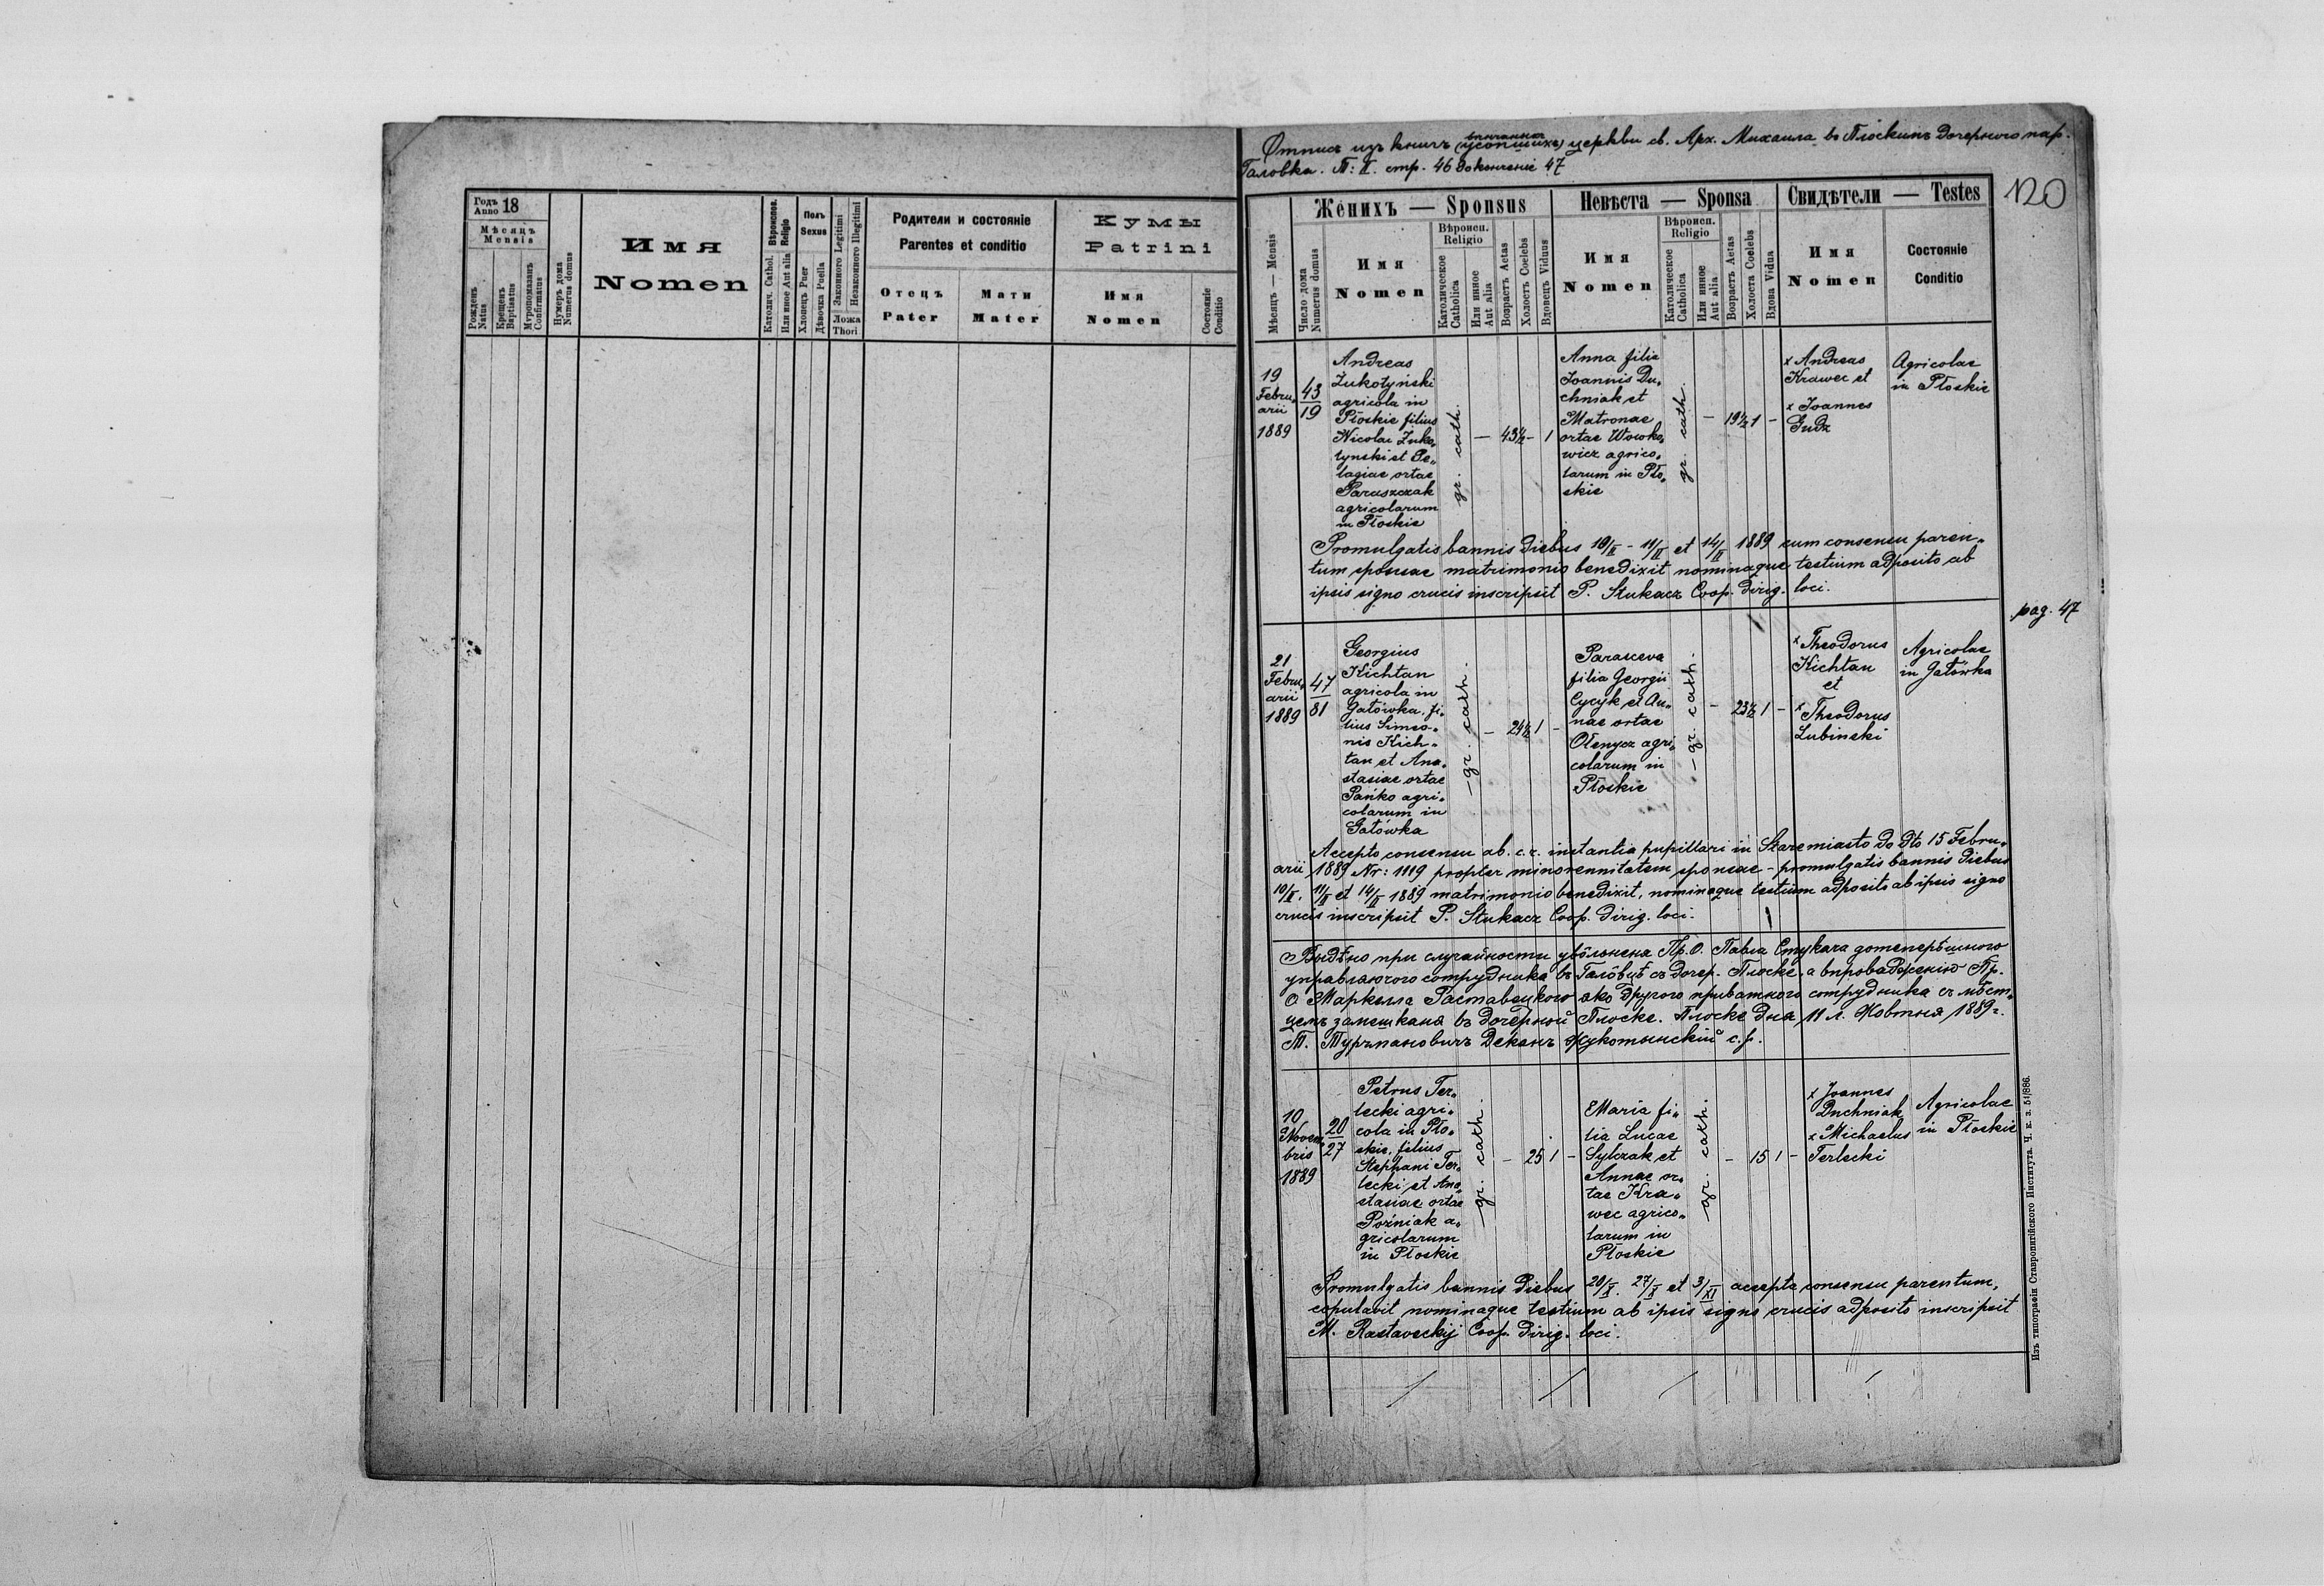 Годъ Anno 18
Мѣсяцъ
Mensis
Рожденъ
Natus
Крещенъ
Baptisatus
Мѵропомазанъ
Confirmatus
Нумеръ дома
Numerus domus
Имя
Nomen
Вѣроиспов.
Religio
Католич. Cathol.
Или иное Aut alia
Полъ
Sexus
Хлопецъ Puer
Дѣвочка Puella
Законного Legitimi
Незаконного Illegitimi
Ложа
Thori
Родители и состояніе
Parentes et conditio
Отецъ
Pater
Мати
Mater
Кумы
Patrini
Имя
Nomen
Состояніе
Conditio
Отпись изъ книгъ (усопшихъ) вѣнчанныхъ церкви св. Арх. Михаила въ Плоскимъ дочернього пар.
Галовка. Т: II. стр. 46 докончение 47
120
Мѣсяцъ — Mensis
Число дома
Numerus domus
Женихъ — Sponsus
Имя
Nomen
Вѣроисп.
Religio
Католическое
Catholica
Или инное
Aut alia
Возрастъ Aetas
Холостъ Coelebs
Вдовецъ Viduus
Невѣста — Sponsa
Имя
Nomen
Вѣроисп.
Religio
Католическое
Catholica
Или инное
Aut alia
Возрастъ Aetas
Холоста Coelebs
Вдова Vidua
Свидѣтели — Testes
Имя
Nomen
Состояніе
Conditio
19
Febru„
arii
1889
43
19
Andreas
Żukotyński
agricola in
Płoskie filius
Nicolai Żuko„
tynski et Pe„
lagiae ortae
Paraszczak
agricolarum
in Płoskie
gr. cath.
– 43½ – 1
Anna filia
Joannis Du„
chniak et
Matronae
ortae Wowko„
wicz agrico„
larum in Pło„
skie
gr. cath.
– 19½ 1 –
x Andreas
Krawec et
x Joannes
Gudz
Agricolae
in Płoskie
Promulgatis bannis diebus 10/II - 11/II et 14/II 1889 cum consensu paren„
tum sponsae matrimonio benedixit nominaque testium adposito ab
ipsis signo crucis inscripsit P. Stukacz Coop. dirig. loci.
pag. 47
21
Febru„
arii
1889
47
81
Georgius
Kichtan
agricola in
Gałówka. fi„
lius Simeo„
nis Kich„
tan et Ana„
stasiae ortae
Pańko agri„
colarum in
Gałówka
– gr. cath.
– 24½ 1 –
Parasceva
filia Georgii
Cycyk et An„
nae ortae
Ołenycz agri„
colarum in
Płoskie
– gr. cath.
– 23½ 1 –
x Theodorus
Kichtan
et
x Theodorus
Lubinski
Agricolae
in Gałówka
Accepto consensu ab. c. r. instantia pupillari in Staremiasto do dto 15 Febru„
arii 1889 Nr: 1119 propter minorennitatem sponsae – promulgatis bannis diebus
10/II. 11/II et 14/II 1889 matrimonio benedixit, nominaque testium adposito ab ipsis signo
crucis inscripsit P. Stukacz Coop. dirig. loci.
Выдѣно при случайности увôльненя Пр. О. Павла Стукача дотеперѣшного
управляючого сотрудника въ Галôвцѣ съ дочер. Плоске, а впровадженію Пр.
О Маркелла Раставецкого яко другого приватного сотрудника съ мѣст„
цемъ замешканя въ дочерной Плоске. Плоске дня 11 л. Жовтня 1889 г.
Т. Турчмановичъ Деканъ Жукотынскій с. р.
10
Novem„
bris
1889
20
27
Petrus Ter„
lecki agri„
cola in Pło„
skie, filius
Stephani Ter„
lecki et Ana„
stasiae ortae
Poźniak a„
gricolarum
in Płoskie
– gr. cath.
– 25 1 –
Maria fi„
lia Lucae
Sylczak et
Annae or„
tae Kra„
wec agrico„
larum in
Płoskie
– gr. cath.
– 15 1 –
x Joannes
Duchniak
x Michaelus
Terlecki
Agricolae
in Płoskie
Promulgatis bannis diebus 20/X. 27/X et 3/XI accepto consensu parentum,
copulavit nominaque testium ab ipsis signo crucis adposito inscripsit
M. Rastaveckij Coop. dirig. loci.
Изъ типографіи Ставропигійского Института. Ч. к. з. 51/886.